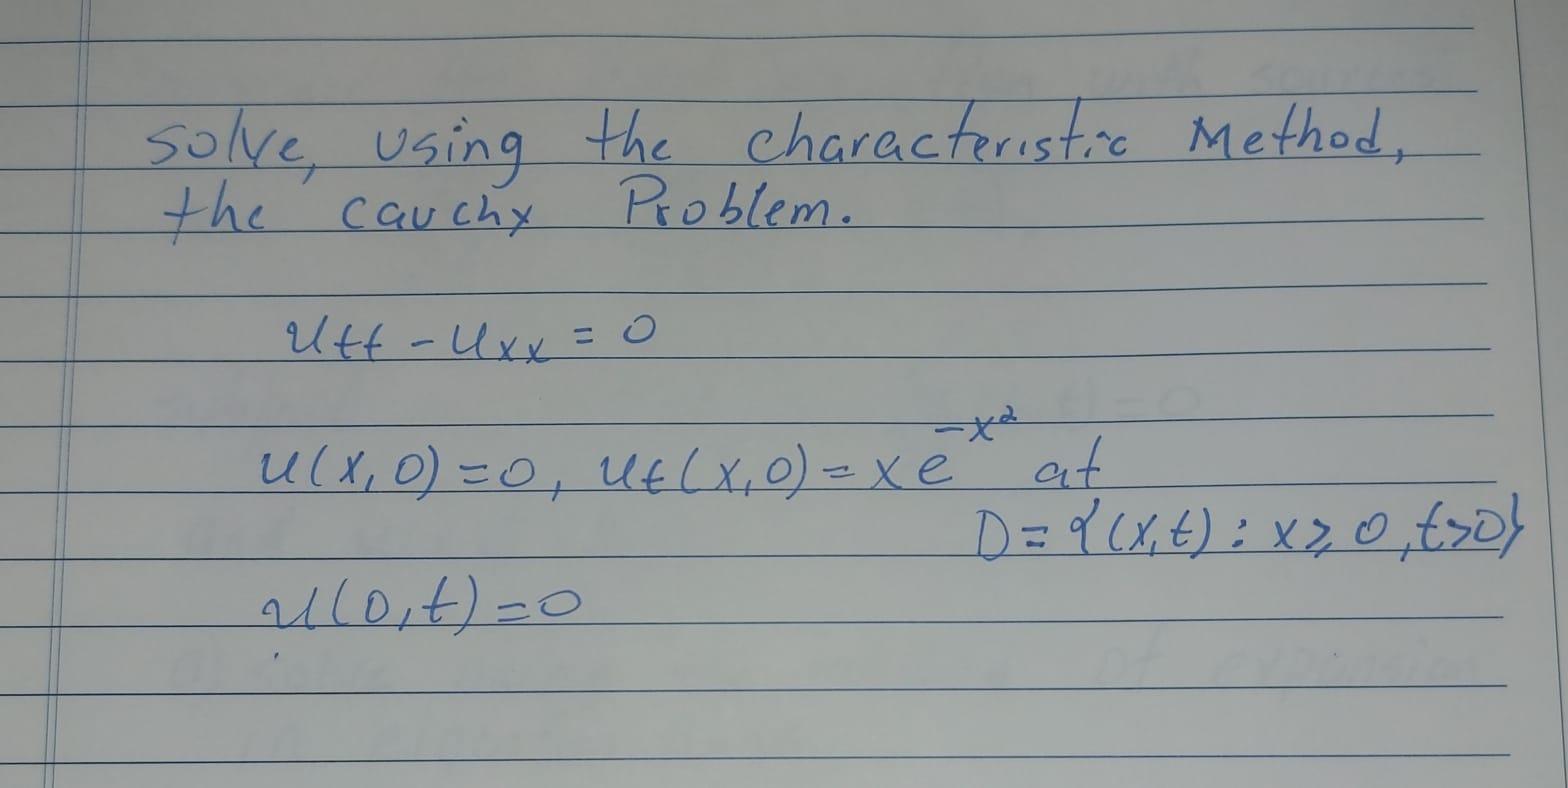 solve, using the characteristic Method,
the cauchy Problem.
utt - uxx = 0
u(x,0)=0, ut(x,0)=xe^-x² at
D={(x,t): x≥0,t>0}
u(0,t)=0